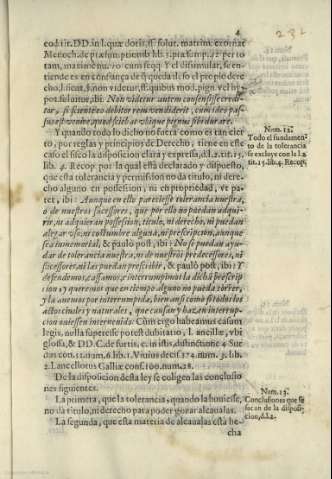 4
232
eod tit. DD. in l. quæ dotis. ff. solut. matrim.
Menoch. de præsumptionib lib. 3. præsum. 131. per to
tam, maxime nu. 70. cum seqq. Y el disimular, se en-
tiende es en confiança de q̃ queda ilæso el propio dere
cho, l. sicut, §. non videtur, ff. quibus mod. pign. vel hy
pot. soluitur, ibi: Non videtur autem consensisse credi-
tor, si sciente eo debitor rem vendiderit, cum ideo pas-
sus est venire, quod sciebat vbique pignus sibi durare.
Y quando todo lo dicho no fuera como es tan cier
to, por reglas y principios de Derecho, tiene en este
caso el fisco la disposicion clara y expressa, al. 2. tit. 15.
lib. 4. Recop. por la qual está declarado y dispuesto,
que esta tolerancia y permission no da titulo, ni dere
cho alguno en possession, ni en propriedad, vt pa-
tet, ibi: Aunque en ello pareciesse tolerancia nuestra,
o de nuestros sucessores, que por ello no puedan adqui-
rir, ni adquieran possession, titulo, ni derecho, ni puedan
alegar vso, ni costumbre alguna, ni prescripcion, aunque
sea immemorial, & paulò post, ibi: No se puedan ayu-
dar de tolerancia nuestra, ni de nuestros predecessores, ni
sucessores, ni las puedan prescribir, & paulò post, ibi: Y
defendemos, assamos, è interrumpimos la dicha prescrip-
cion, y queremos que en tiempo alguno no pueda correr,
y la auemos por interrumpida, bien ansi como si todos los
actos ciuiles y naturales, que causan y hazen interrup-
cion, vuiessen interuenido. Cum ergo habeamus casum
legis, nulla superest potest dubitatio, l. ancillæ, vbi
glossa, & DD. C. de furtis,
cons. 11. num. 6. lib. 1. Vinius decis. 174. num. 3. lib.
2. Lancellotus Galliæ cons. 100. num. 28.
De la disposicion desta ley se coligen las conclusio
nes siguientes.
La primera, que la tolerancia, quando la huuiesse,
no da titulo, ni derecho para poder gozar alcaualas.
La segunda, que esta materia de alcaualas está he-
cha
Num. 12.
Todo el fundamen
to de la tolerancia
se excluye con la l. 2
tit. 15. lib. 4. Recop.
Num. 13.
Conclusiones que se
sacan de la disposi-
cion, d. l. 2.